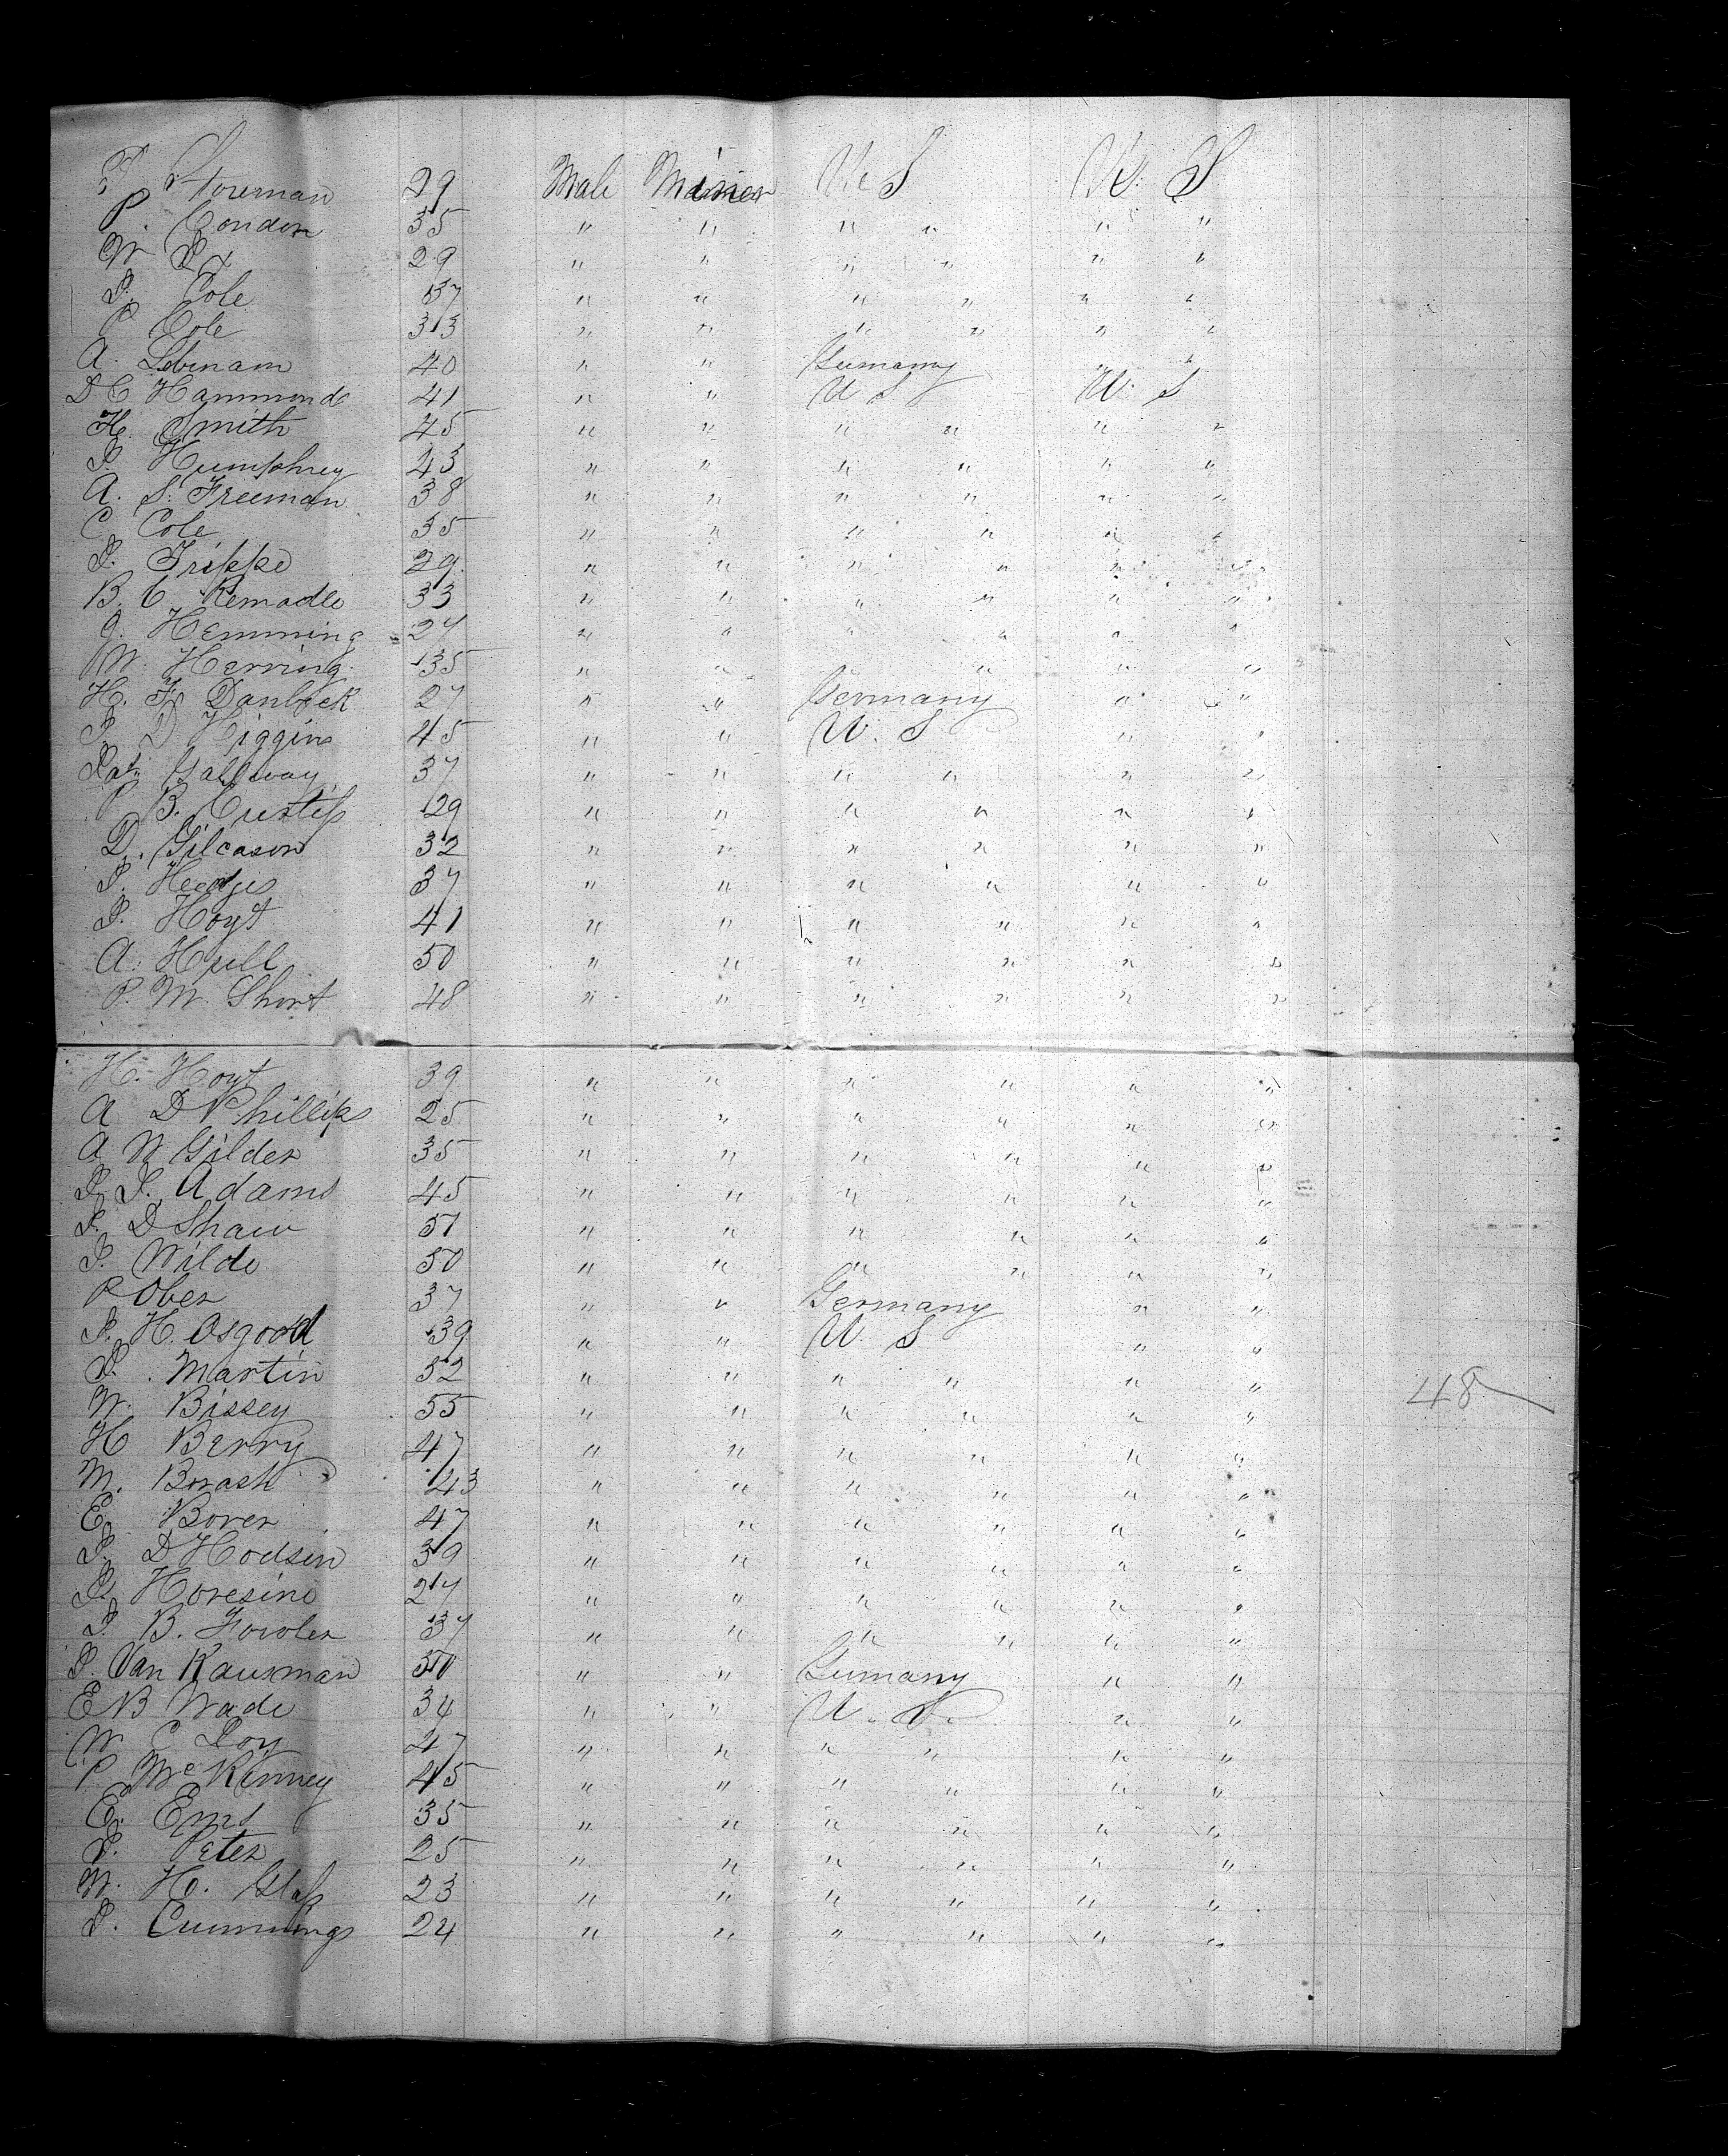 F Foreman 29 Male Miner U. S U. S
P. Condon 35 " " " " " "
W 29 " " " " " "
J. Cole 37 " " " " " "
P Cole 33 " " " " " "
A. 40 " " Germany " "
D C Hammond 41 " " U S U. S
H. Smith 45 " " " " " "
J. Humphrey 43 " " " " " "
A. S. Freeman 38 " " " " " "
C Cole 35 " " " " " "
J. Trippe 29 " " " " " "
B. C. Remadle 33 " " " " " "
J. Hemming 27 " " " " " "
W. Herring 35 " " " " " "
H. F. Danbeck 27 " " Germany " "
J. D Higgins 45 " " U. S " "
Pat Gallway 37 " " " " " "
P B. Curtiss 29 " " " " " "
D. Gilcason 32 " " " " " "
J. Hedges 37 " " " " " "
J. Hoyt 41 " " " " " "
A. Hull 50 " " " " " "
P. M. Short 48 " " " " " "
H. Hoyt 39 " " " " " "
A D Phillips 25 " " " " " "
A W Gilder 35 " " " " " "
J. J. Adams 45 " " " " " "
J. D Shaw 51 " " " " " "
J. Wilde 50 " " " " " "
P Ober 37 " " Germany " "
J. H. Osgood 39 " " U. S " "
J. Martin 32 " " " " " "
W. Bissey 55 " " " " " "
H Berry 47 " " " " " "
M. Borash 43 " " " " " "
E. Borer 47 " " " " " "
J. D Hodsin 39 " " " " " "
J. Horesine 27 " " " " " "
J. B. Fowler 37 " " " " " "
J. Van Kausman 50 " " Germany " "
E B Wade 34 " " U. S. " "
W C 47 " " " " " "
P McKinney 45 " " " " " "
E. Ems 35 " " " " " "
J. Peter 25 " " " " " "
W. H. Glass 23 " " " " " "
J. Cummings 24 " " " " " "
48